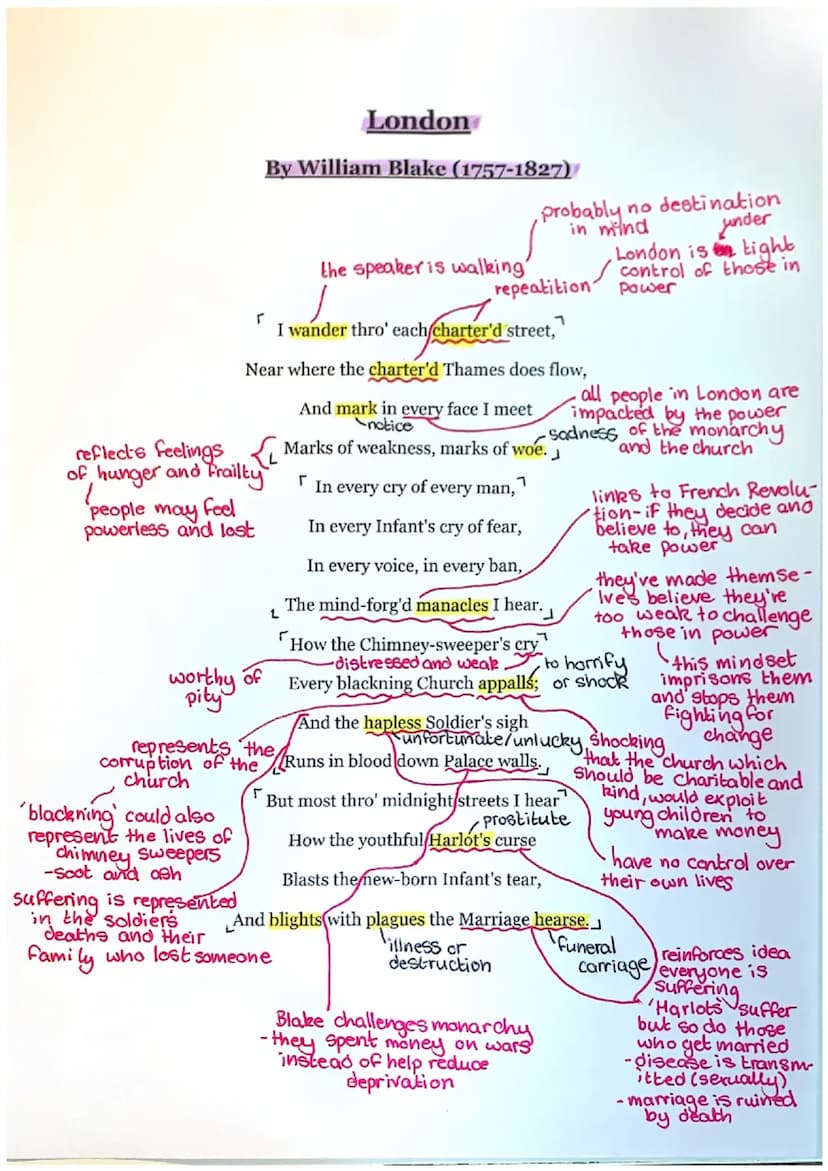 London
By William Blake (1757-1827)
probably no destination
in mind
under
the speaker is walking
London is tight
control of those in
power
repeatition
I wander thro' each charter'd street,
Near where the charter'd Thames does flow,
And mark in every face I meet
notice
all people in London are
impacted by the power
of the monarchy
and the church
sadness
Marks of weakness, marks of woe.
reflects feelings
of hunger and frailty
people may feel
powerless and lost
In every cry of every man,
In every Infant's cry of fear,
In every voice, in every ban,
The mind-forg'd manacles I hear.
links to French Revolu-
tion-if they decide and
believe to, they can
take power
they've made themse-
lves believe they're
too weak to challenge
those in power
this mindset
imprisons them
and stops them
fighting for
change
How the Chimney-sweeper's cry
distressed and weak
worthy of
pity
Every blackning Church appalls;
to horrify
or shock
And the hapless Soldier's sigh
unfortunate/unlucky
Runs in blood down Palace walls.
represents the
corruption of the
church
'blackning' could also
represent the lives of
chimney sweepers
-soot and ash
shocking
that the church which
should be charitable and
kind, would exploit
young children to
make money
But most thro' midnight streets I hear
prostitute
How the youthful Harlot's curse
Blasts the new-born Infant's tear,
And blights with plagues the Marriage hearse.
have no control over
their own lives
suffering is represented
in the soldiers
deaths and their
family who lost someone
illness or
destruction
funeral
carriage
Blake challenges monarchy
- they spent money on wars
instead of help reduce
deprivation
reinforces idea
everyone is
suffering
'Harlots' suffer
but so do those
who get married
- disease is transm-
itted (sexually)
- marriage is ruined
by death